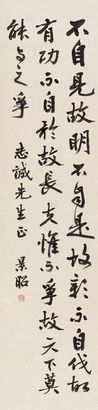 不自見故明不自是故彰不自伐故
有功不自矜故長夫惟不爭故天下莫
能与之爭
志誠先生正 景昭